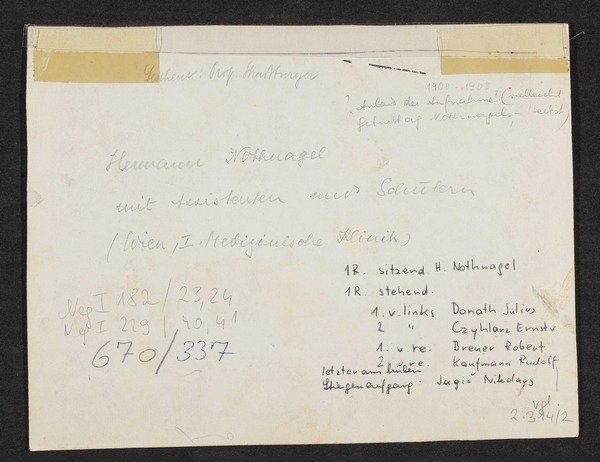 Geschenk: Prof. Strassburger
1900-1903
? Anlass der Aufnahme? (vielleicht
Geburtstag Nothnagels,
Hermann Nothnagel
mit Assistenten und Schülern
(Wien, I. Medizinische Klinik)
1R. sitzend H. Nothnagel
1R. stehend.
1. v. links Donath Julius
2 " Czyhlarz Ernst v
1. v. re. Breuer Robert
2 v. re. Kaufmann Rudolf
letzter am linken
Stiegenaufgang. Jagič Nikolaus
Neg I 182 / 23,24
Neg I 229 / 40,41
670/337
vgl.
2.314/2